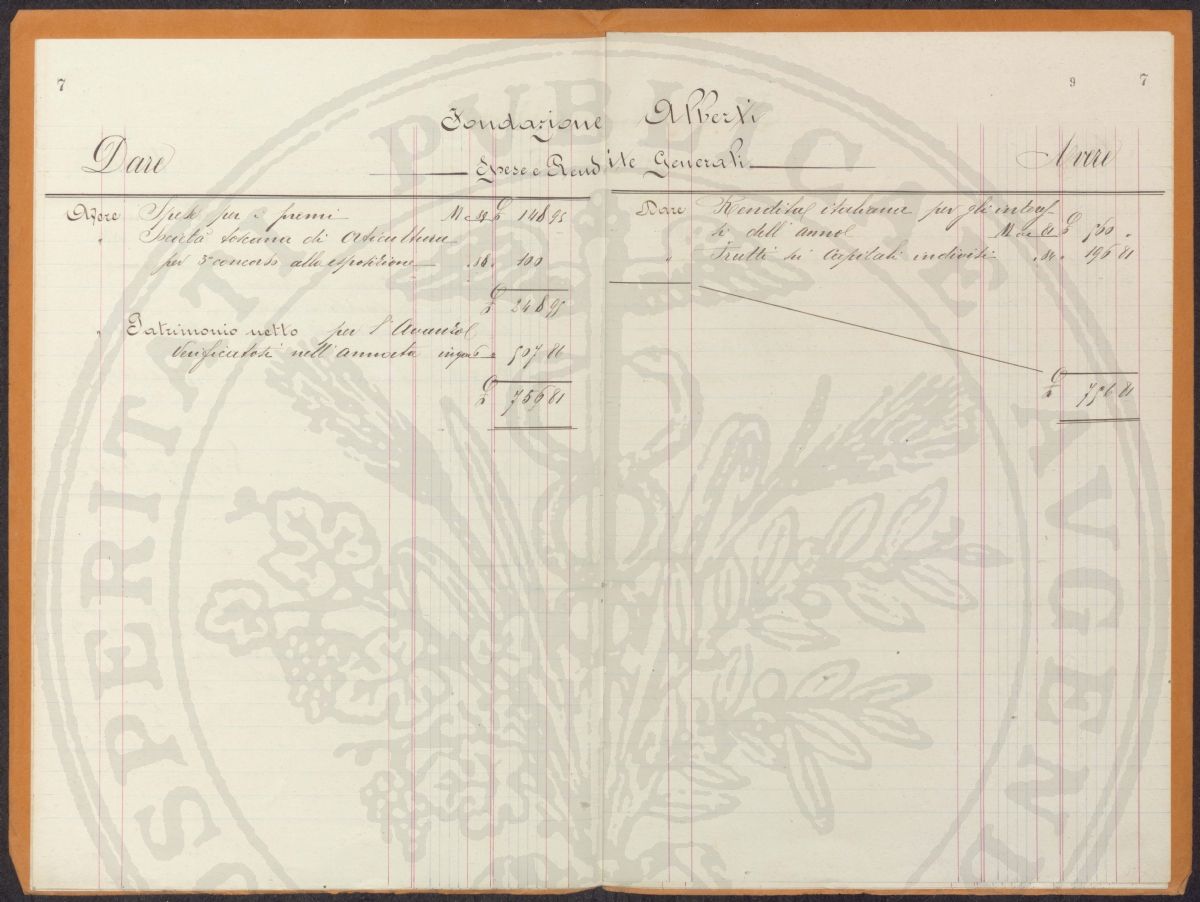 7
9 7
Fondazione Alberti
Dare
Spese e Rendite Generali
Avere
Avere Spese per i premi M 148 95
" Società toscana di Orticultura
per 3° concorso alla esposizione 100
£ 248 95
" Patrimonio netto per l'Avanzo
verificatosi nell'annata 507 86
£ 756 81
Dare Rendita italiana per gli interes-
si dell'anno £ 560 "
" Frutti su Capitali indivisi 196 81
£ 756 81
PROSPERITATI PUBLICAE AVGEND